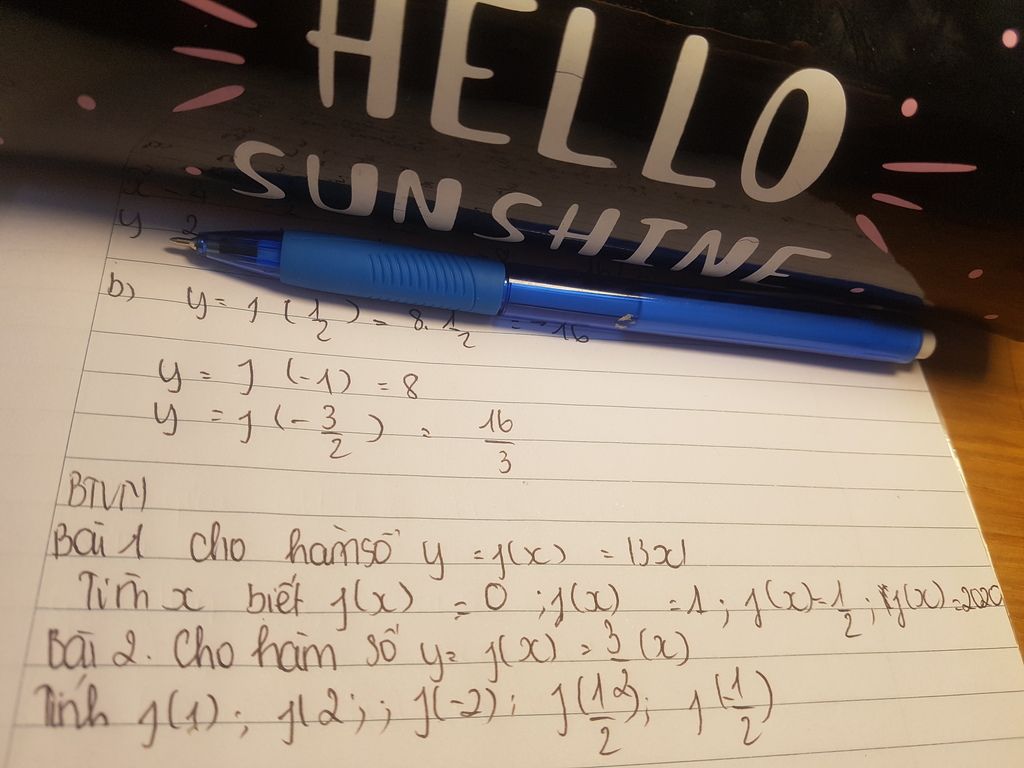 HELLO
SUNSHINE
y 2
b) y = f(1/2) = 8. 1/2 = -16
y = f(-1) = 8
y = f(-3/2) = 16/3
BTVN
Bài 1 cho hàm số y = f(x) = |3x|
Tìm x biết f(x) = 0 ; f(x) = 1 ; f(x) = 1/2 ; f(x) = 2020
Bài 2. Cho hàm số y = f(x) = 3/2 (x)
Tính f(1) ; f(2 ; ; f(-2) ; f(12/2) ; f(-1/2)